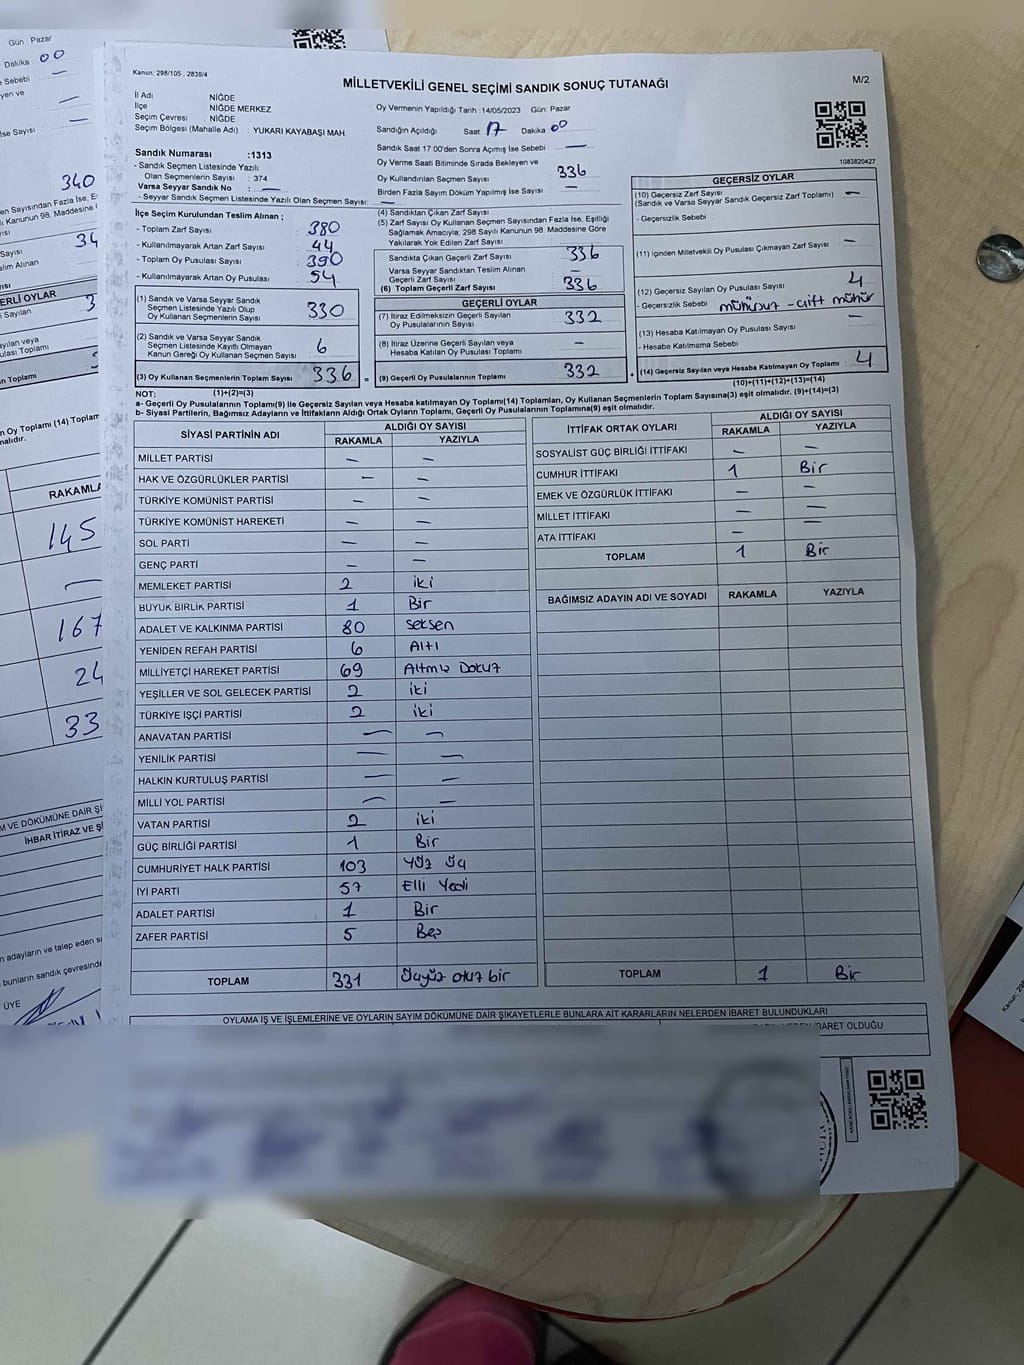 Gün : Pazar
Dakika : 00
Sebebi : —
yen ve
—
se Sayısı : —
340
en Sayısından Fazla İse, E
lı Kanunun 98. Maddesine
34
lim Alınan
ERLİ OYLAR
Sayılan
3
ayılan veya
usulası Toplamı
n Toplamı
n Oy Toplamı (14) Toplam
malıdır.
RAKAMLA
145
—
167
24
33
M VE DÖKÜMÜNE DAİR Şİ
İHBAR İTİRAZ VE Ş
n adayların ve talep eden s
bunların sandık çevresinde
ÜYE
Kanun; 298/105 , 2839/4
MİLLETVEKİLİ GENEL SEÇİMİ SANDIK SONUÇ TUTANAĞI
M/2
İl Adı : NİĞDE
İlçe : NİĞDE MERKEZ
Seçim Çevresi : NİĞDE
Seçim Bölgesi (Mahalle Adı) : YUKARI KAYABAŞI MAH.
Oy Vermenin Yapıldığı Tarih : 14/05/2023 Gün: Pazar
Sandığın Açıldığı Saat : 17 Dakika : 00
Sandık Saat 17.00'den Sonra Açımış İse Sebebi : —
Oy Verme Saati Bitiminde Sırada Bekleyen ve
Oy Kullandırılan Seçmen Sayısı : 336
Birden Fazla Sayım Döküm Yapılmış İse Sayısı : —
1083820427
Sandık Numarası :1313
- Sandık Seçmen Listesinde Yazılı
Olan Seçmenlerin Sayısı : 374
Varsa Seyyar Sandık No : —
- Seyyar Sandık Seçmen Listesinde Yazılı Olan Seçmen Sayısı : —
İlçe Seçim Kurulundan Teslim Alınan ;
- Toplam Zarf Sayısı : 380
- Kullanılmayarak Artan Zarf Sayısı : 44
- Toplam Oy Pusulası : 390
- Kullanılmayarak Artan Oy Pusulası : 54
(1) Sandık ve Varsa Seyyar Sandık
Seçmen Listesinde Yazılı Olup
Oy Kullanan Seçmenlerin Sayısı : 330
(2) Sandık ve Varsa Seyyar Sandık
Seçmen Listesinde Kayıtlı Olmayan
Kanun Gereği Oy Kullanan Seçmen Sayısı : 6
(3) Oy Kullanan Seçmenlerin Toplam Sayısı : 336
(1)+(2)=(3)
(4) Sandıktan Çıkan Zarf Sayısı :
(5) Zarf Sayısı Oy Kullanan Seçmen Sayısından Fazla İse, Eşitliği
Sağlamak Amacıyla; 298 Sayılı Kanunun 98. Maddesine Göre
Yakılarak Yok Edilen Zarf Sayısı :
Sandıkta Çıkan Geçerli Zarf Sayısı : 336
Varsa Seyyar Sandıktan Teslim Alınan
Geçerli Zarf Sayısı : —
(6) Toplam Geçerli Zarf Sayısı : 336
GEÇERLİ OYLAR
(7) İtiraz Edilmeksizin Geçerli Sayılan
Oy Pusulalarının Sayısı : 332
(8) İtiraz Üzerine Geçerli Sayılan veya
Hesaba Katılan Oy Pusulası Toplamı : —
= (9) Geçerli Oy Pusulalarının Toplamı : 332
GEÇERSİZ OYLAR
(10) Geçersiz Zarf Sayısı : —
(Sandık ve Varsa Seyyar Sandık Geçersiz Zarf Toplamı)
- Geçersizlik Sebebi :
(11) İçinden Milletvekili Oy Pusulası Çıkmayan Zarf Sayısı : —
(12) Geçersiz Sayılan Oy Pusulası Sayısı : 4
- Geçersizlik Sebebi : mühürsüz - çift mühür
(13) Hesaba Katılmayan Oy Pusulası Sayısı : —
- Hesaba Katılmama Sebebi :
+ (14) Geçersiz Sayılan veya Hesaba Katılmayan Oy Toplamı : 4
(10)+(11)+(12)+(13)=(14)
NOT:
a- Geçerli Oy Pusulalarının Toplamı(9) ile Geçersiz Sayılan veya Hesaba katılmayan Oy Toplamı(14) Toplamları, Oy Kullanan Seçmenlerin Toplam Sayısına(3) eşit olmalıdır. (9)+(14)=(3)
b- Siyasi Partilerin, Bağımsız Adayların ve İttifakların Aldığı Ortak Oyların Toplamı, Geçerli Oy Pusulalarının Toplamına(9) eşit olmalıdır.
SİYASİ PARTİNİN ADI ALDIĞI OY SAYISI
RAKAMLA YAZIYLA
MİLLET PARTİSİ — —
HAK VE ÖZGÜRLÜKLER PARTİSİ — —
TÜRKİYE KOMÜNİST PARTİSİ — —
TÜRKİYE KOMÜNİST HAREKETİ — —
SOL PARTİ — —
GENÇ PARTİ — —
MEMLEKET PARTİSİ 2 iki
BÜYÜK BİRLİK PARTİSİ 1 Bir
ADALET VE KALKINMA PARTİSİ 80 seksen
YENİDEN REFAH PARTİSİ 6 Altı
MİLLİYETÇİ HAREKET PARTİSİ 69 Altmış Dokuz
YEŞİLLER VE SOL GELECEK PARTİSİ 2 iki
TÜRKİYE İŞÇİ PARTİSİ 2 iki
ANAVATAN PARTİSİ — —
YENİLİK PARTİSİ — —
HALKIN KURTULUŞ PARTİSİ — —
MİLLİ YOL PARTİSİ — —
VATAN PARTİSİ 2 iki
GÜÇ BİRLİĞİ PARTİSİ 1 Bir
CUMHURİYET HALK PARTİSİ 103 Yüz üç
İYİ PARTİ 57 Elli Yedi
ADALET PARTİSİ 1 Bir
ZAFER PARTİSİ 5 Beş
TOPLAM 331 Üçyüz otuz bir
İTTİFAK ORTAK OYLARI ALDIĞI OY SAYISI
RAKAMLA YAZIYLA
SOSYALİST GÜÇ BİRLİĞİ İTTİFAKI — —
CUMHUR İTTİFAKI 1 Bir
EMEK VE ÖZGÜRLÜK İTTİFAKI — —
MİLLET İTTİFAKI — —
ATA İTTİFAKI — —
TOPLAM 1 Bir
BAĞIMSIZ ADAYIN ADI VE SOYADI RAKAMLA YAZIYLA
TOPLAM 1 Bir
OYLAMA İŞ VE İŞLEMLERİNE VE OYLARIN SAYIM DÖKÜMÜNE DAİR ŞİKAYETLERLE BUNLARA AİT KARARLARIN NELERDEN İBARET BULUNDUKLARI
BARET OLDUĞU
Kanun; 298